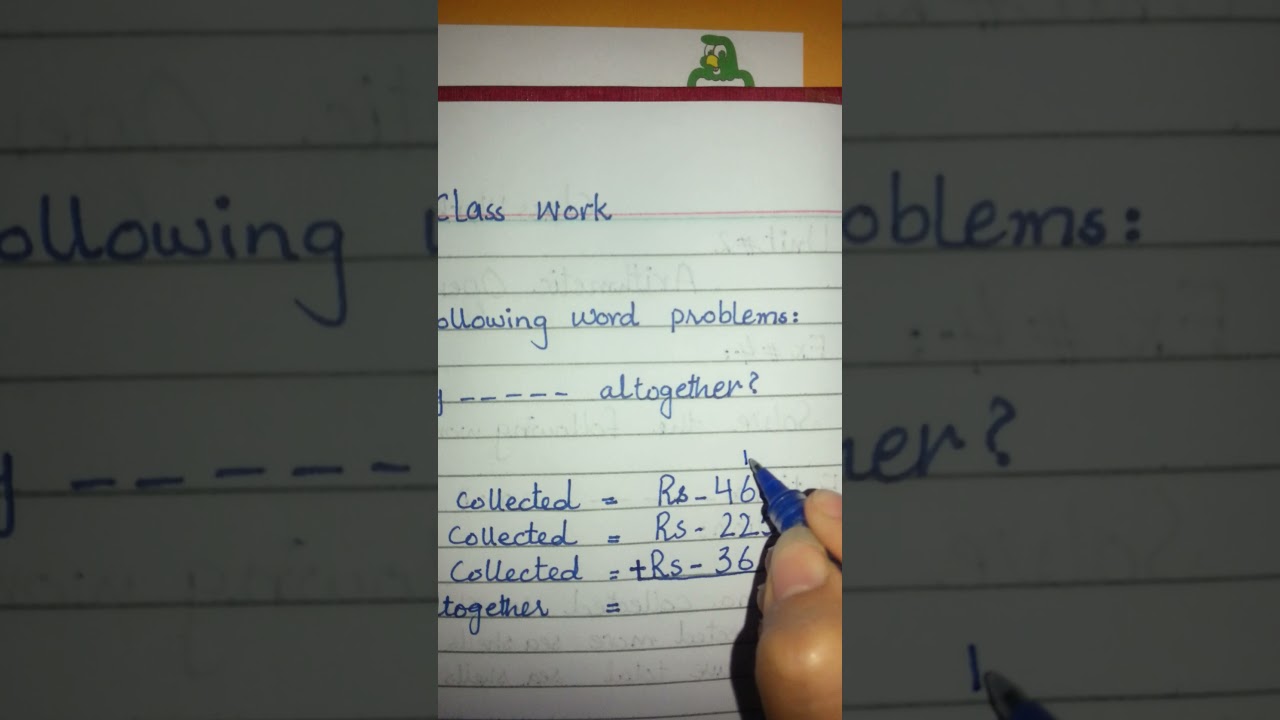 Class work
ollowing word problems:
----- altogether?
1
collected = Rs-46
collected = Rs-22
collected = +Rs-36
together =